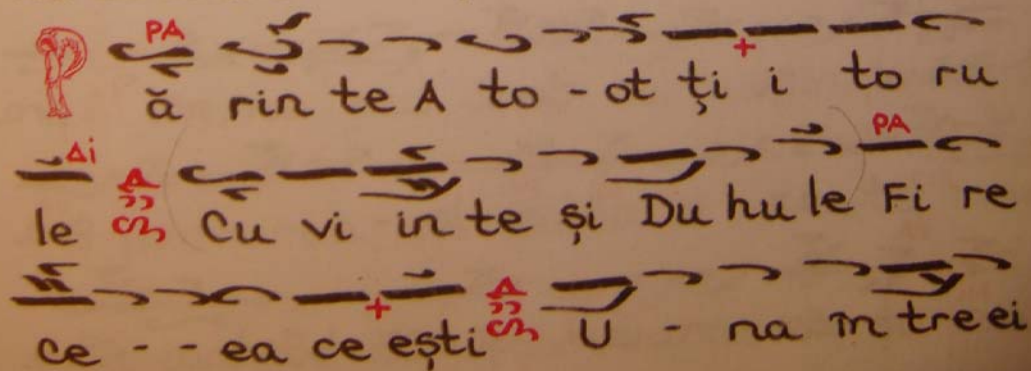 PA
P ă rin te A to - ot ţi i to ru
Δi PA
le Cu vi in te şi Du hu le Fi re
ce - - ea ce eşti U - na în trei ei